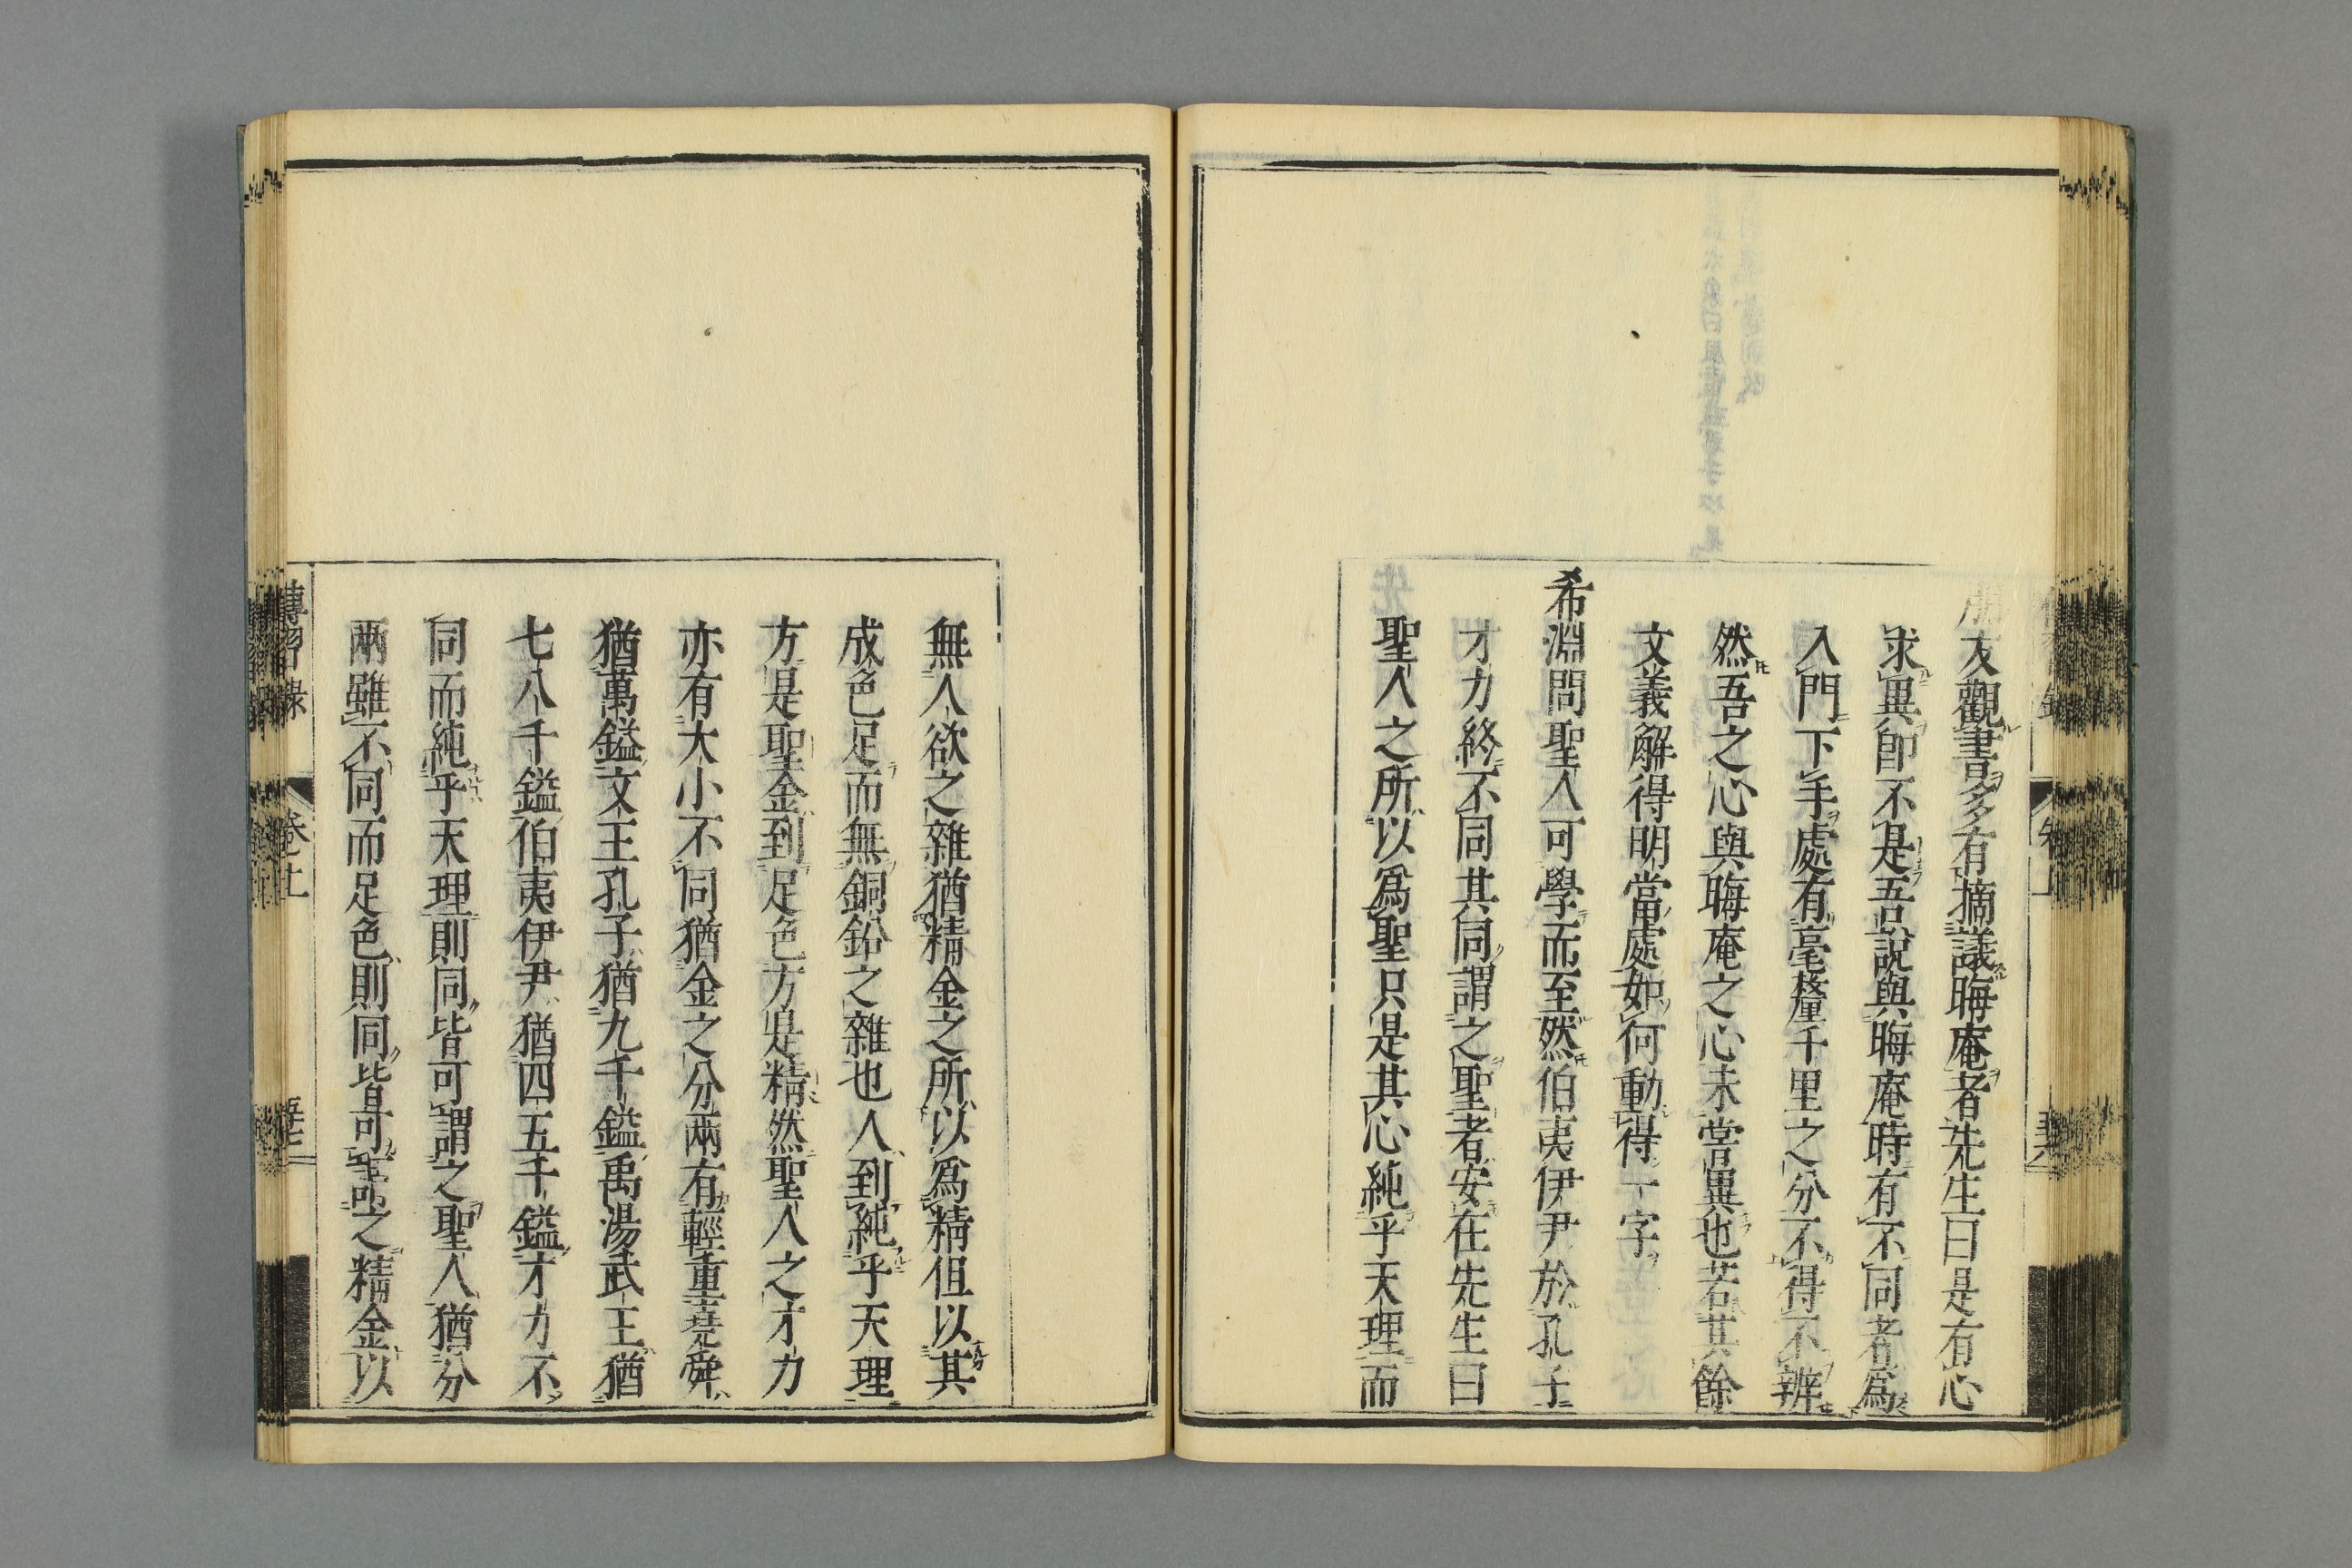 朋友觀書多有摘議晦庵者先生曰是有心
求異卽不是吾說與晦庵時有不同者爲
入門下手處有毫釐千里之分不得不辨
然吾之心與晦庵之心未嘗異也若其餘
文義解得明當處如何動得一字
希淵問聖人可學而至然伯夷伊尹於孔子
才力終不同其同謂之聖者安在先生曰
聖人之所以爲聖只是其心純乎天理而
無人欲之雜猶精金之所以爲精但以其
成色足而無銅鉛之雜也人到純乎天理
方是聖金到足色方是精然聖人之才力
亦有大小不同猶金之分兩有輕重堯舜
猶萬鎰文王孔子猶九千鎰禹湯武王猶
七八千鎰伯夷伊尹猶四五千鎰才力不
同而純乎天理則同皆可謂之聖人猶分
兩雖不同而足色則同皆可謂之精金以
傳習錄
卷上